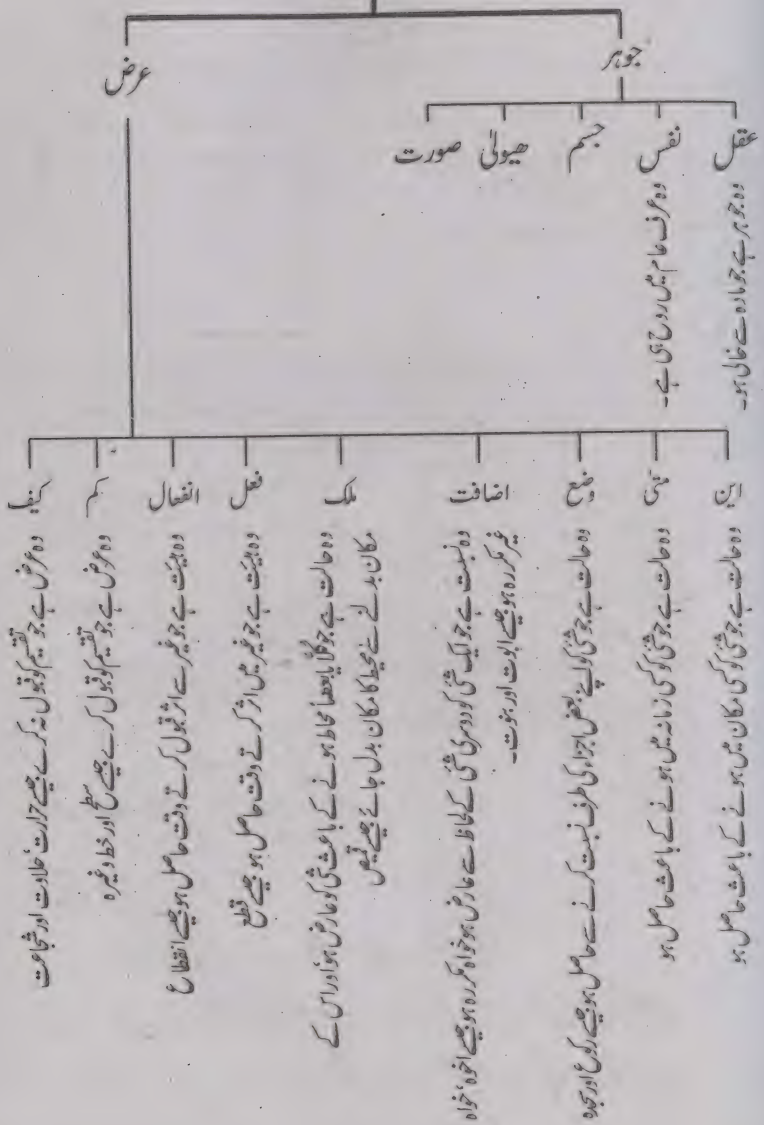 جوہر
عرض
عقل
نفس
جسم
ھیولٰی
صورت
وہ جوہر ہے جو مادہ سے خالی ہو۔
وہ عرف عام میں روح ہی ہے۔
این
متٰی
وضع
اضافت
ملک
فعل
انفعال
کم
کیف
وہ حالت ہے جو شئ کو کسی مکان میں ہونے کے باعث حاصل ہو
وہ حالت ہے جو شئ کو کسی زمانہ میں ہونے کے باعث حاصل ہو
وہ حالت ہے جو شئ کو اپنے بعض اجزاء کی طرف نسبت کرنے سے حاصل ہو جیسے رکوع اور سجدہ
وہ نسبت ہے جو ایک شئ کو دوسری شئ کے لحاظ سے عارض ہو خواہ مکررہ ہو جیسے اخوہ، خواہ
غیر مکررہ ہو جیسے ابوت اور بنوت۔
وہ حالت ہے جو کلاً یا بعضاً محاط ہونے کے باعث شئ کو عارض ہو اور اس کے
مکان بدلنے سے محیط کا مکان بدل جائے جیسے قمیص
وہ ہیئت ہے جو غیر میں اثر کرتے وقت حاصل ہو جیسے قطع
وہ ہیئت ہے جو غیر سے اثر قبول کرتے وقت حاصل ہو جیسے انقطاع
وہ عرض ہے جو تقسیم کو قبول کرے جیسے سطح اور خط وغیرہ
وہ عرض ہے جو تقسیم کو قبول نہ کرے جیسے حرارت، حلاوت اور شجاعت